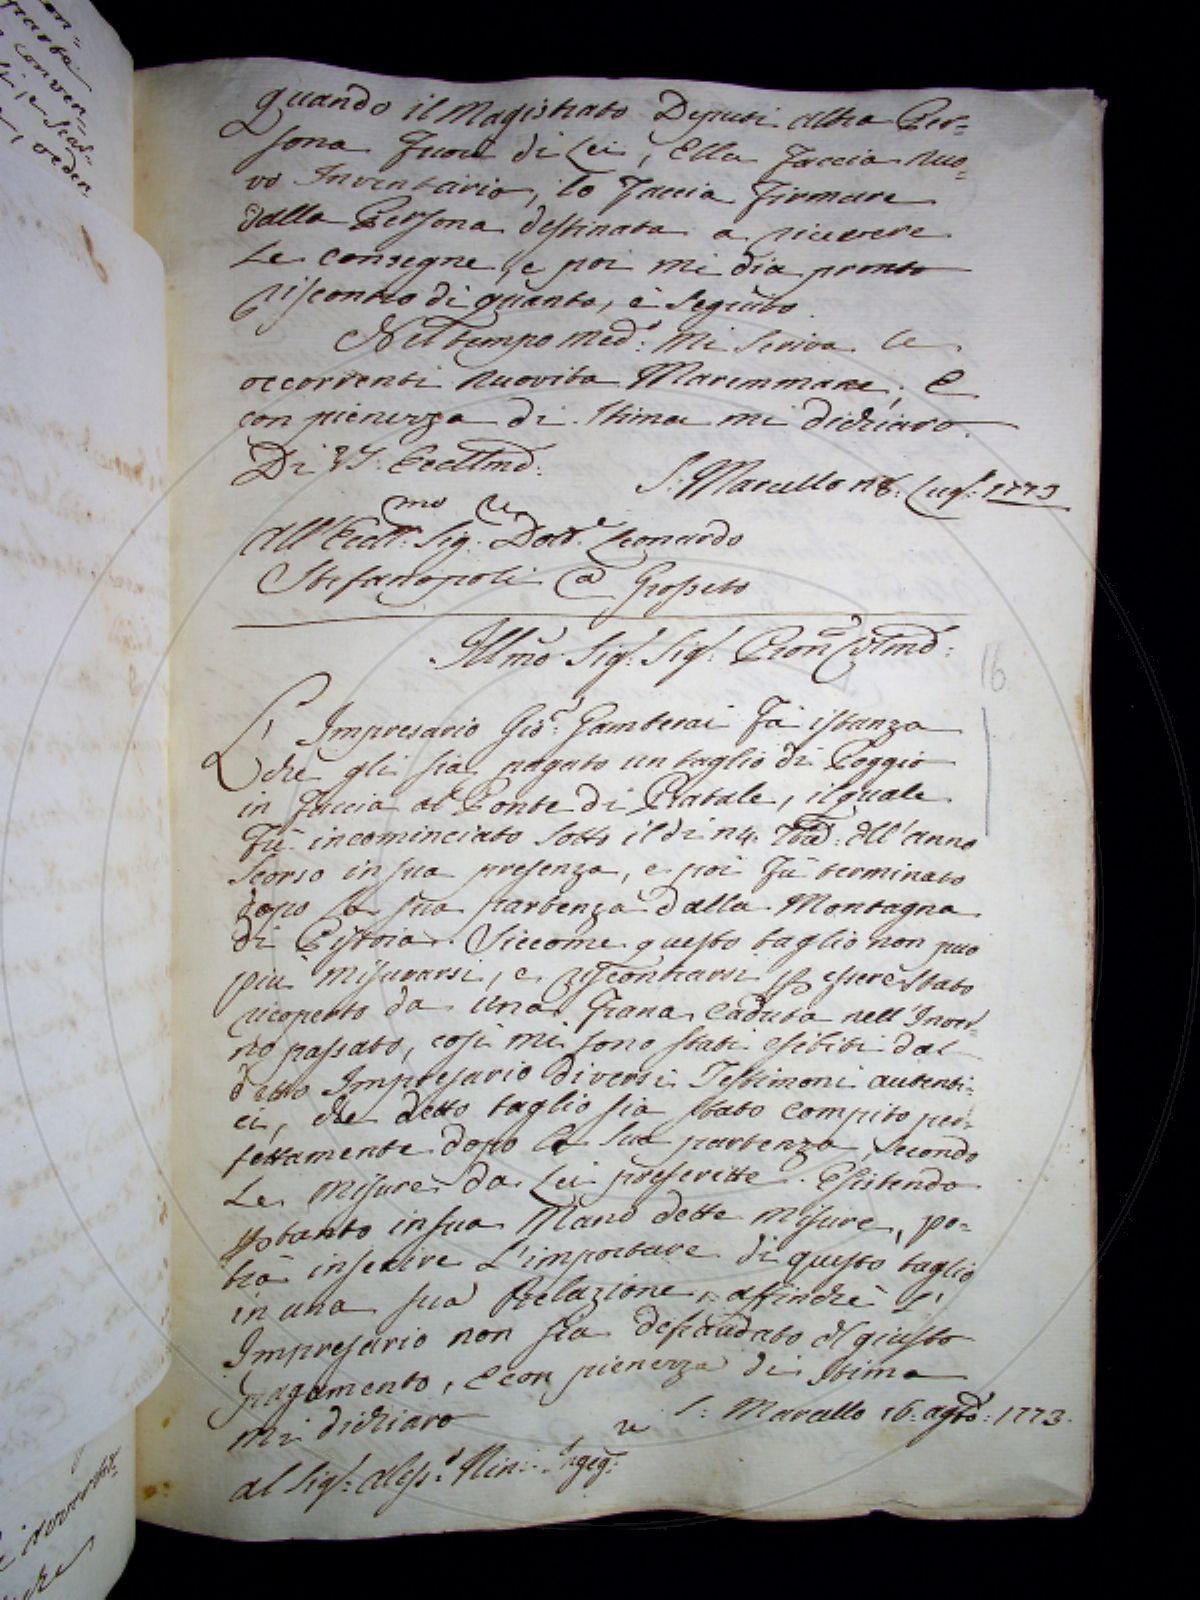 quando il Magistrato Deputi altra Per=
sona fuori di Lei, Ella faccia nuo=
vo Inventario, lo faccia firmare
dalla Persona destinata a ricevere
Le consegne, e poi mi dia pronto
riscontro di quanto, è seguito.
Nel tempo med:º mi scriva le
occorrenti nuovità Maremmane; E
con pienezza di stima mi dichiaro.
Di VS: Eccellmã:
S: Marcello 18: Lugº: 1773
All'Eccellmo: Sig:re Dott:e Leonardo
Stefanopoli @ Grosseto
Illmõ: Sigr: Sigr: Pron: Colmõ:
16
L'Impresario Gio: Gamberai Fà istanza
che gli sia pagato un taglio di Poggio
in faccia al Ponte di Rabale, il quale
Fù incominciato sotto il dì 14. 7bre: dell'anno
scorso in sua presenza, e poi fù terminato
dopo la sua partenza dalla Montagna
di Pistoia. Siccome questo taglio non può
più misurarsi, e riscontrarsi p essere stato
ricoperto da una frana caduta nell'Inver=
no passato, così mi sono stati esibiti dal
detto Impresario diversi Testimoni autenti=
ci, che detto taglio sia stato compito per=
fettamente dopo la sua partenza, secondo
Le misure da Lei prescritte. Esistendo
ptanto in sua Mano dette misure, po=
trà inserire L'importare di questo taglio
in una sua Relazione, affinchè L'
Impresario non sia defraudato del giusto
pagamento, e con pienezza di stima
mi dichiaro
S: Marcello 16: agto: 1773.
al Sigr: Aless:º Nini: Ingegre: